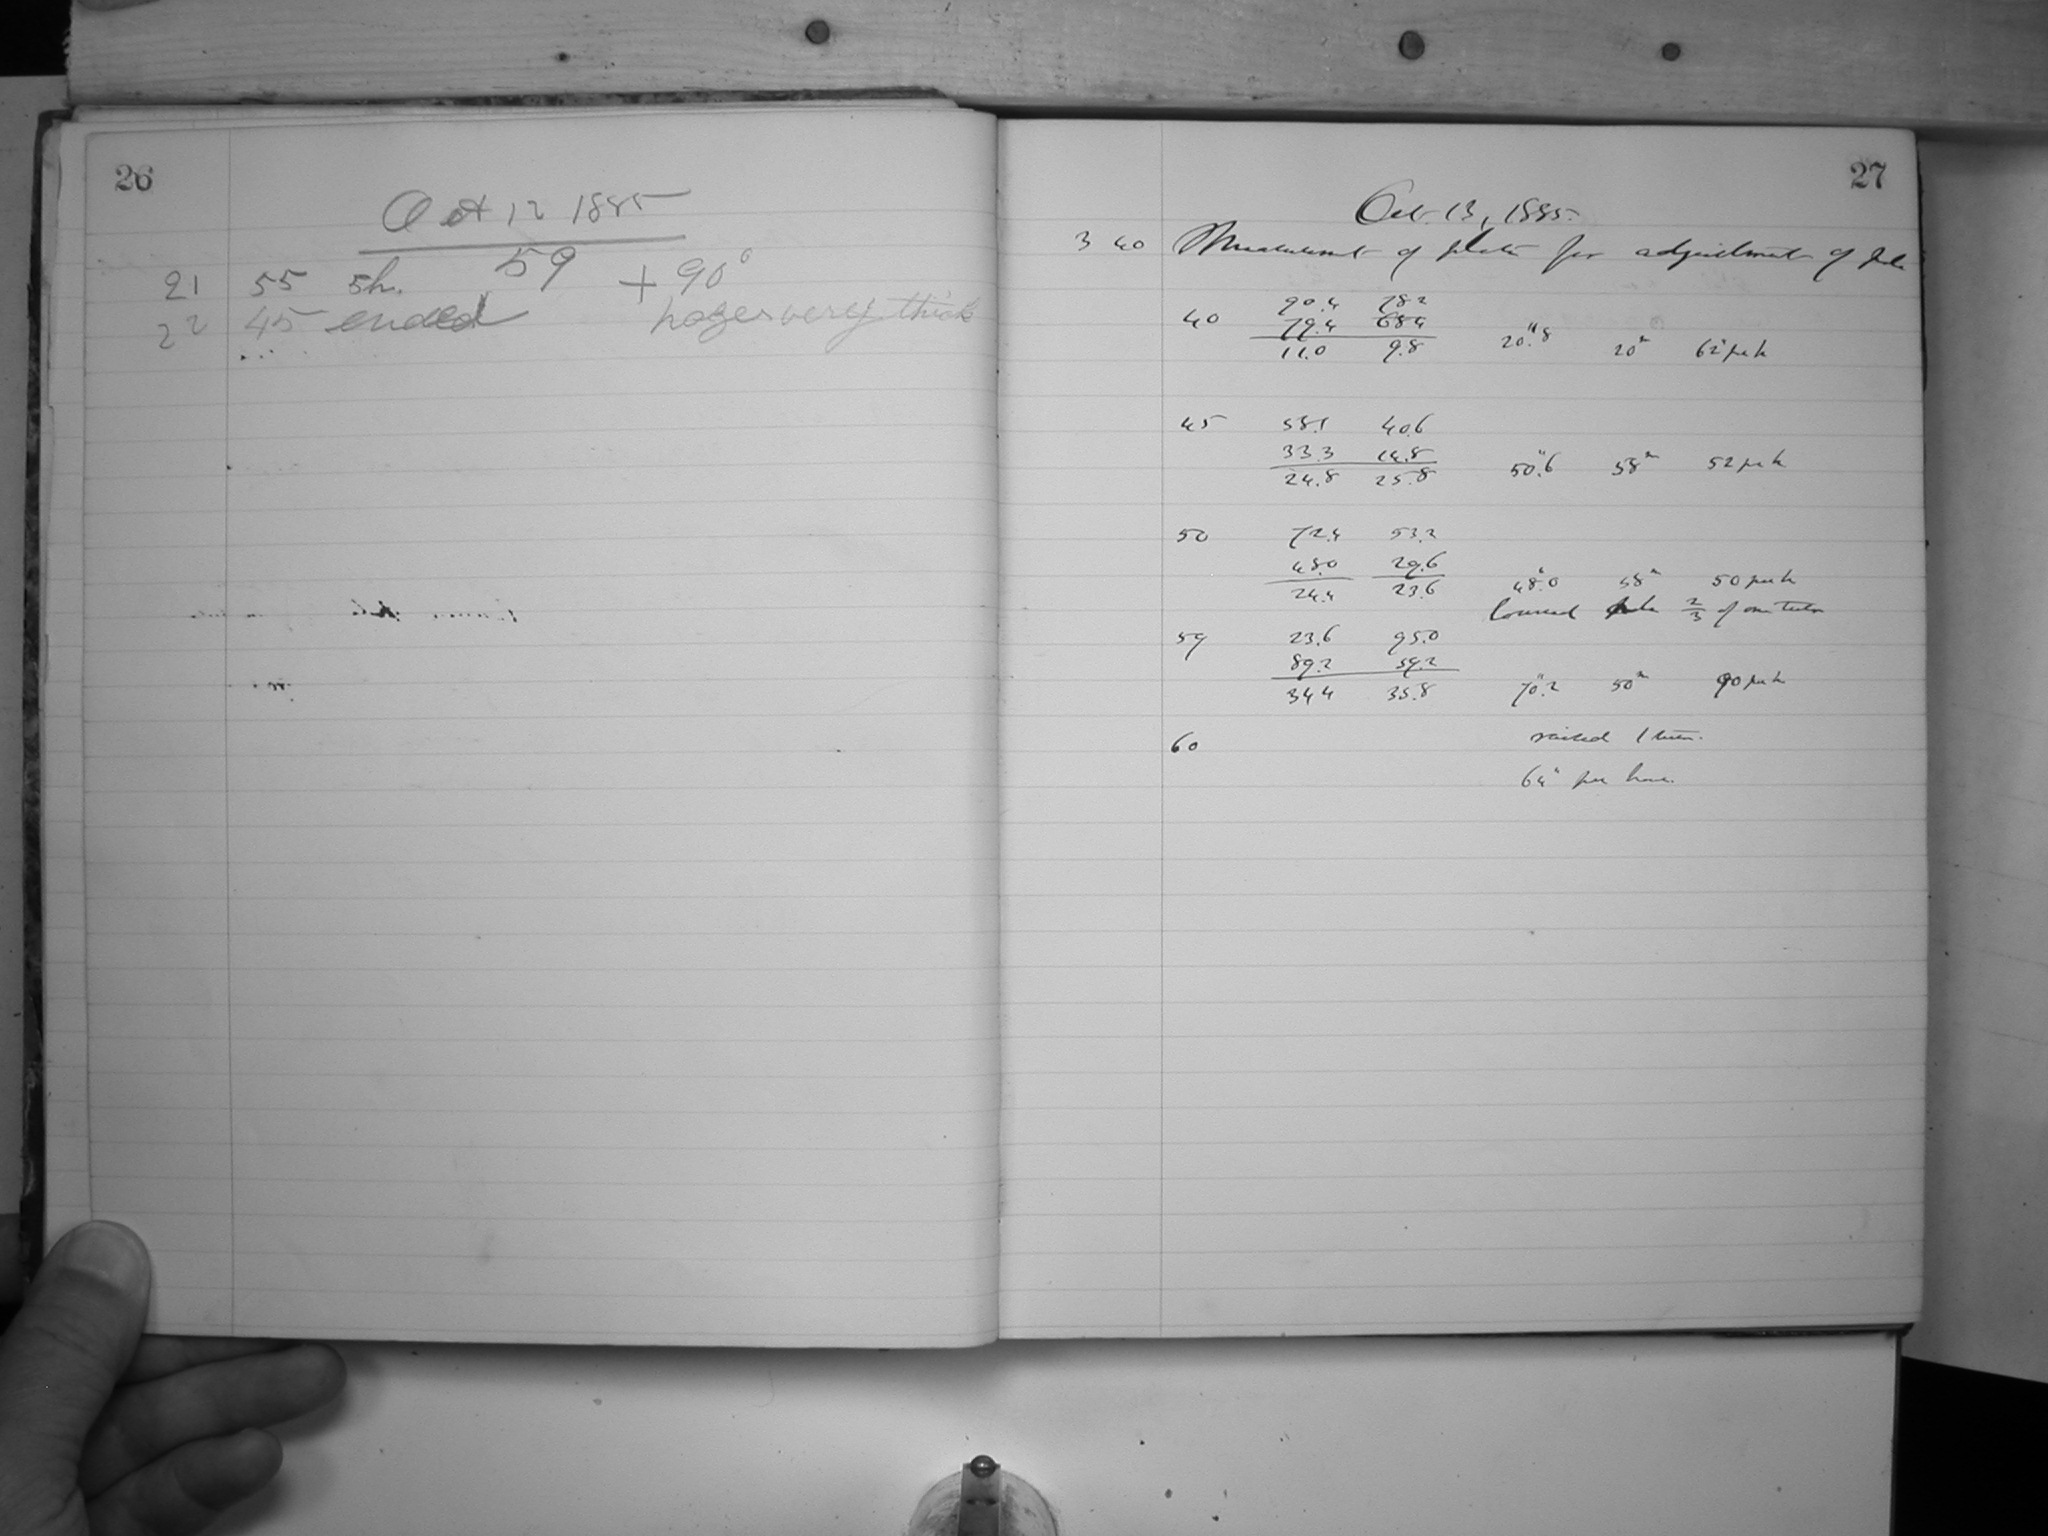 26
Oct 12 1885
59
21 55 5h. + 90°
22 45 ended hazes very thick
27
Oct. 13, 1885.
3 40 Measurement of plates for adjustment of Pole
90.4 78.2
40 79.4 68.4
11.0 9.8 20".8 20m 62" per h
45 58.1 40.6
33.3 14.8
24.8 25.8 50".6 58m 52 per h
50 72.4 53.2
48.0 29.6
24.4 23.6 48".0 58m 50 per h
lowered pole 2/3 of one turn
59 23.6 95.0
89.2 59.2
34.4 35.8 70".2 50m 90 per h
60 raised 1 turn.
64" per hour.